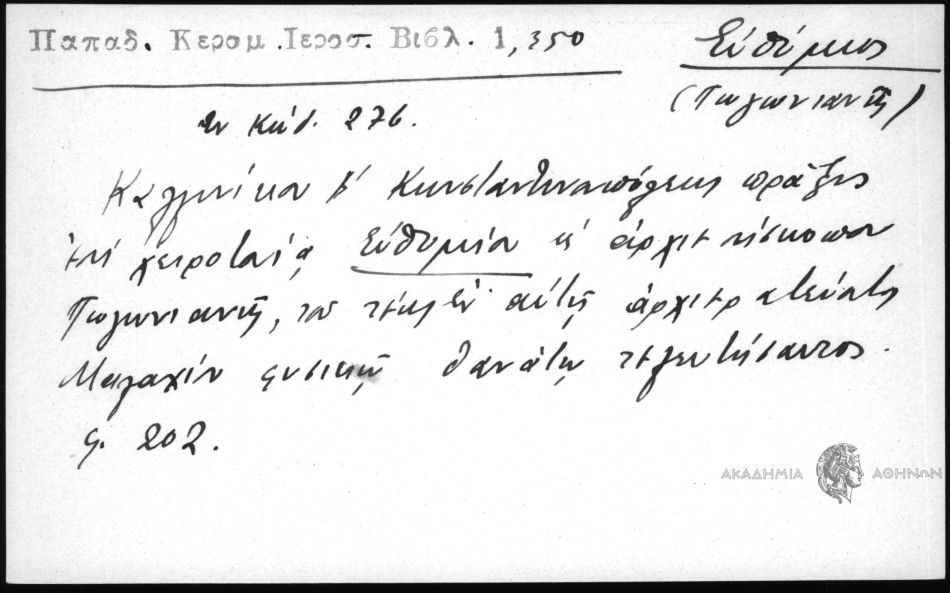 Παπαδ. Κεραμ. Ιεροσ. Βιβλ. 1, 350
Εὐθύμιος
(Πωγωνιανῆς)
ἐν Κώδ. 276.
Καλλινίκου β' Κωνσταντινουπόλεως πρᾶξις
ἐπὶ χειροτονίᾳ Εὐθυμίου εἰς ἀρχιεπίσκοπον
Πωγωνιανῆς, τοῦ πρώην ἐν αὐτῇ ἀρχιερατεύοντος
Μαλαχίου φυσικῷ θανάτῳ τελευτήσαντος.
φ. 202.
ΑΚΑΔΗΜΙΑ ΑΘΗΝΩΝ